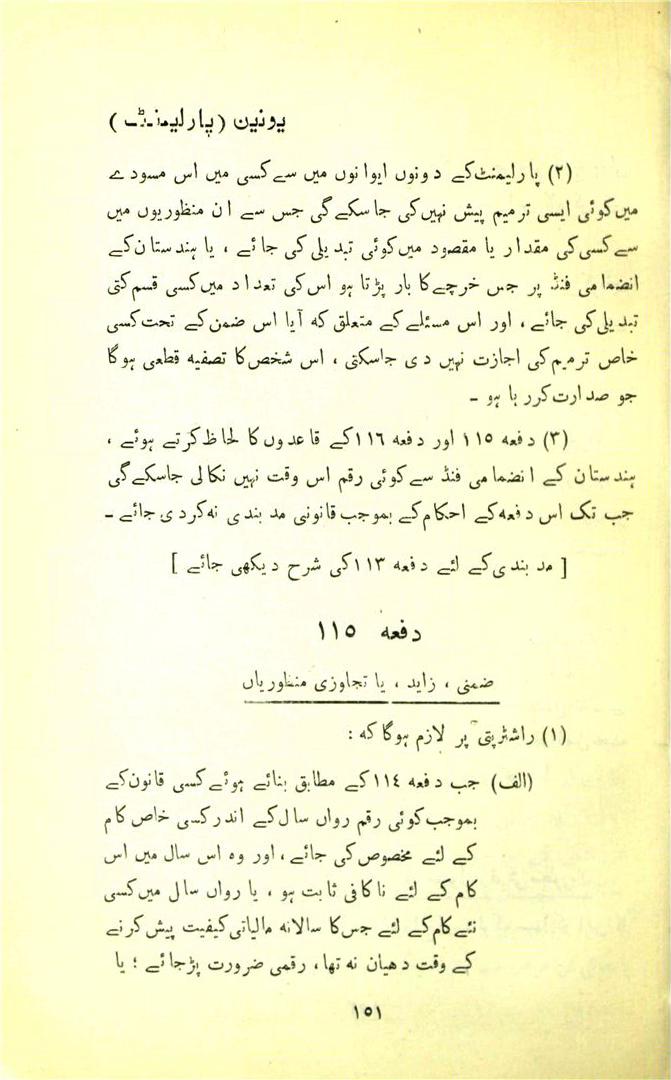 یونین (پارلیمنٹ)
(۲) پارلیمنٹ کے دونوں ایوانوں میں سے کسی میں اس مسودے
میں کوئی ایسی ترمیم پیش نہیں کی جا سکے گی جس سے ان منظوریوں میں
سے کسی کی مقدار یا مقصود میں کوئی تبدیلی کی جائے ، یا ہندستان کے
انضمامی فنڈ پر جس خرچے کا بار پڑتا ہو اس کی تعداد میں کسی قسم کتی
تبدیلی کی جائے ، اور اس مسئلے کے متعلق کہ آیا اس ضمن کے تحت کسی
خاص ترمیم کی اجازت نہیں دی جاسکتی ، اس شخص کا تصفیہ قطعی ہوگا
جو صدارت کر رہا ہو ۔
(۳) دفعہ ۱۱۵ اور دفعہ ۱۱٦ کے قاعدوں کا لحاظ کرتے ہوئے ،
ہندستان کے انضمامی فنڈ سے کوئی رقم اس وقت نہیں نکالی جاسکے گی
جب تک اس دفعہ کے احکام کے بموجب قانونی مد بندی نہ کردی جائے ۔
[ مد بندی کے لئے دفعہ ۱۱۳ کی شرح دیکھی جائے ]
دفعہ ۱۱۵
ضمنی ، زاید ، یا تجاوزی منظوریاں
(۱) راشٹرپتی پر لازم ہوگا کہ :
(الف) جب دفعہ ۱۱٤ کے مطابق بنائے ہوئے کسی قانون کے
بموجب کوئی رقم رواں سال کے اندر کسی خاص کام
کے لئے مخصوص کی جائے ، اور وہ اس سال میں اس
کام کے لئے نا کافی ثابت ہو ، یا رواں سال میں کسی
نئے کام کے لئے جس کا سالانہ مالیاتی کیفیت پیش کرنے
کے وقت دھیان نہ تھا ، رقمی ضرورت پڑ جائے ؛ یا
۱۵۱